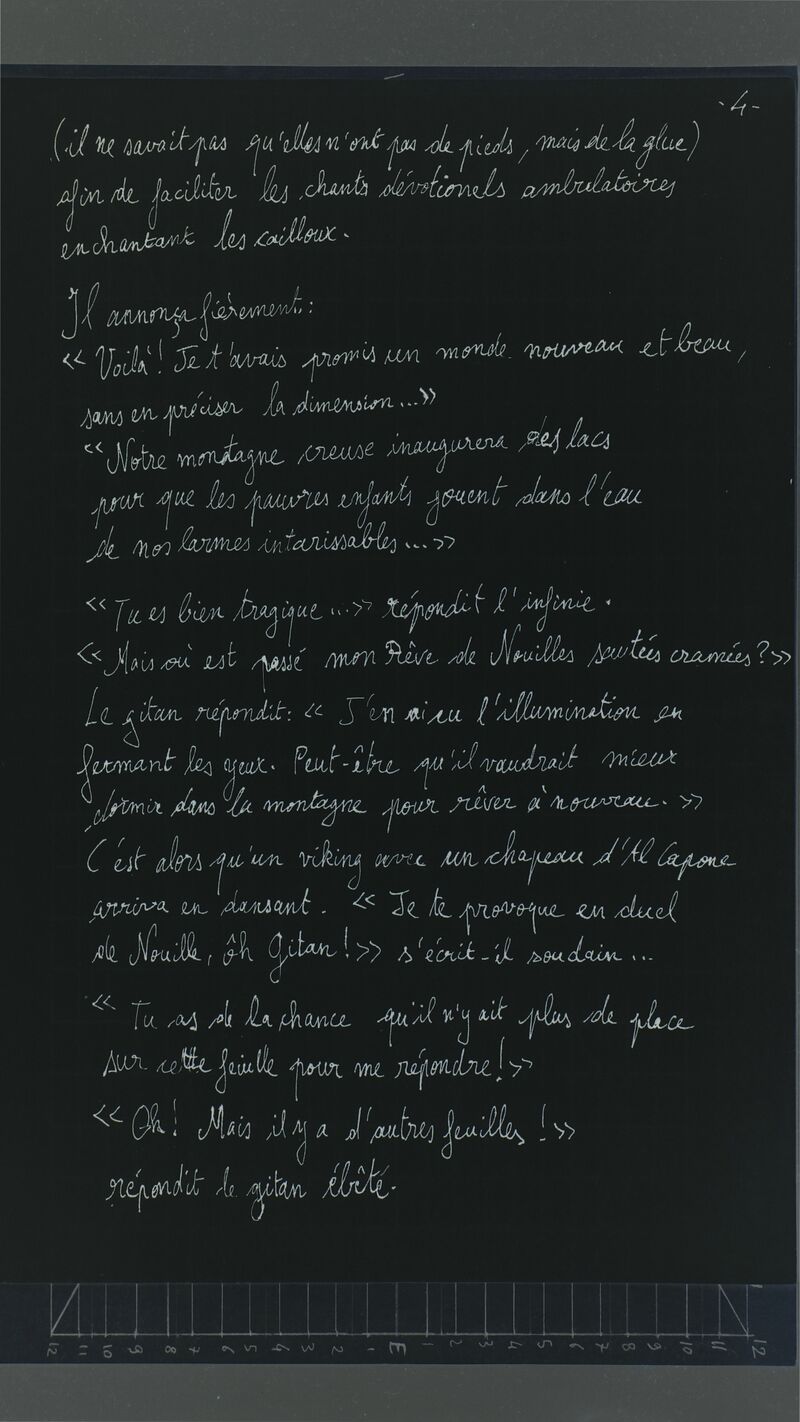 -4-
(il ne savait pas qu'elles n'ont pas de pieds, mais de la glue)
afin de faciliter les chants dévotionels ambulatoires
enchantant les cailloux.
Il annonça fièrement:
<< Voilà! Je t'avais promis un monde nouveau et beau,
sans en préciser la dimension...>>
<< Notre montagne creuse inaugurera des lacs
pour que les pauvres enfants jouent dans l'eau
de nos larmes intarissables...>>
<< Tu es bien tragique...>> répondit l'infinie.
<< Mais où est passé mon Rêve de Nouilles sautées cramées?>>
Le gitan répondit: << J'en ai eu l'illumination en
fermant les yeux. Peut-être qu'il vaudrait mieux
dormir dans la montagne pour rêver à nouveau. >>
C'est alors qu'un viking avec un chapeau d'Al Capone
arriva en dansant. << Je te provoque en duel
de Nouille, ôh Gitan!>> s'écrit-il soudain...
<< Tu as de la chance qu'il n'y ait plus de place
sur cette feuille pour me répondre!>>
<< Oh! Mais il y a d'autres feuilles !>>
répondit le gitan ébêté.
12 11 10 9 8 7 6 5 4 3 2 1 E 1 2 3 4 5 6 7 8 9 10 11 12